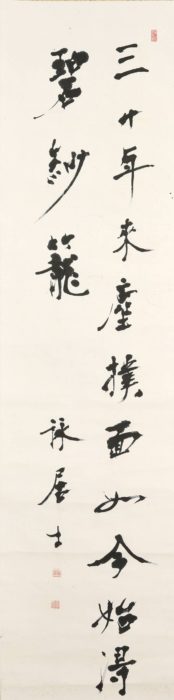 三十年來塵撲面如今始得
碧紗籠
詠居士